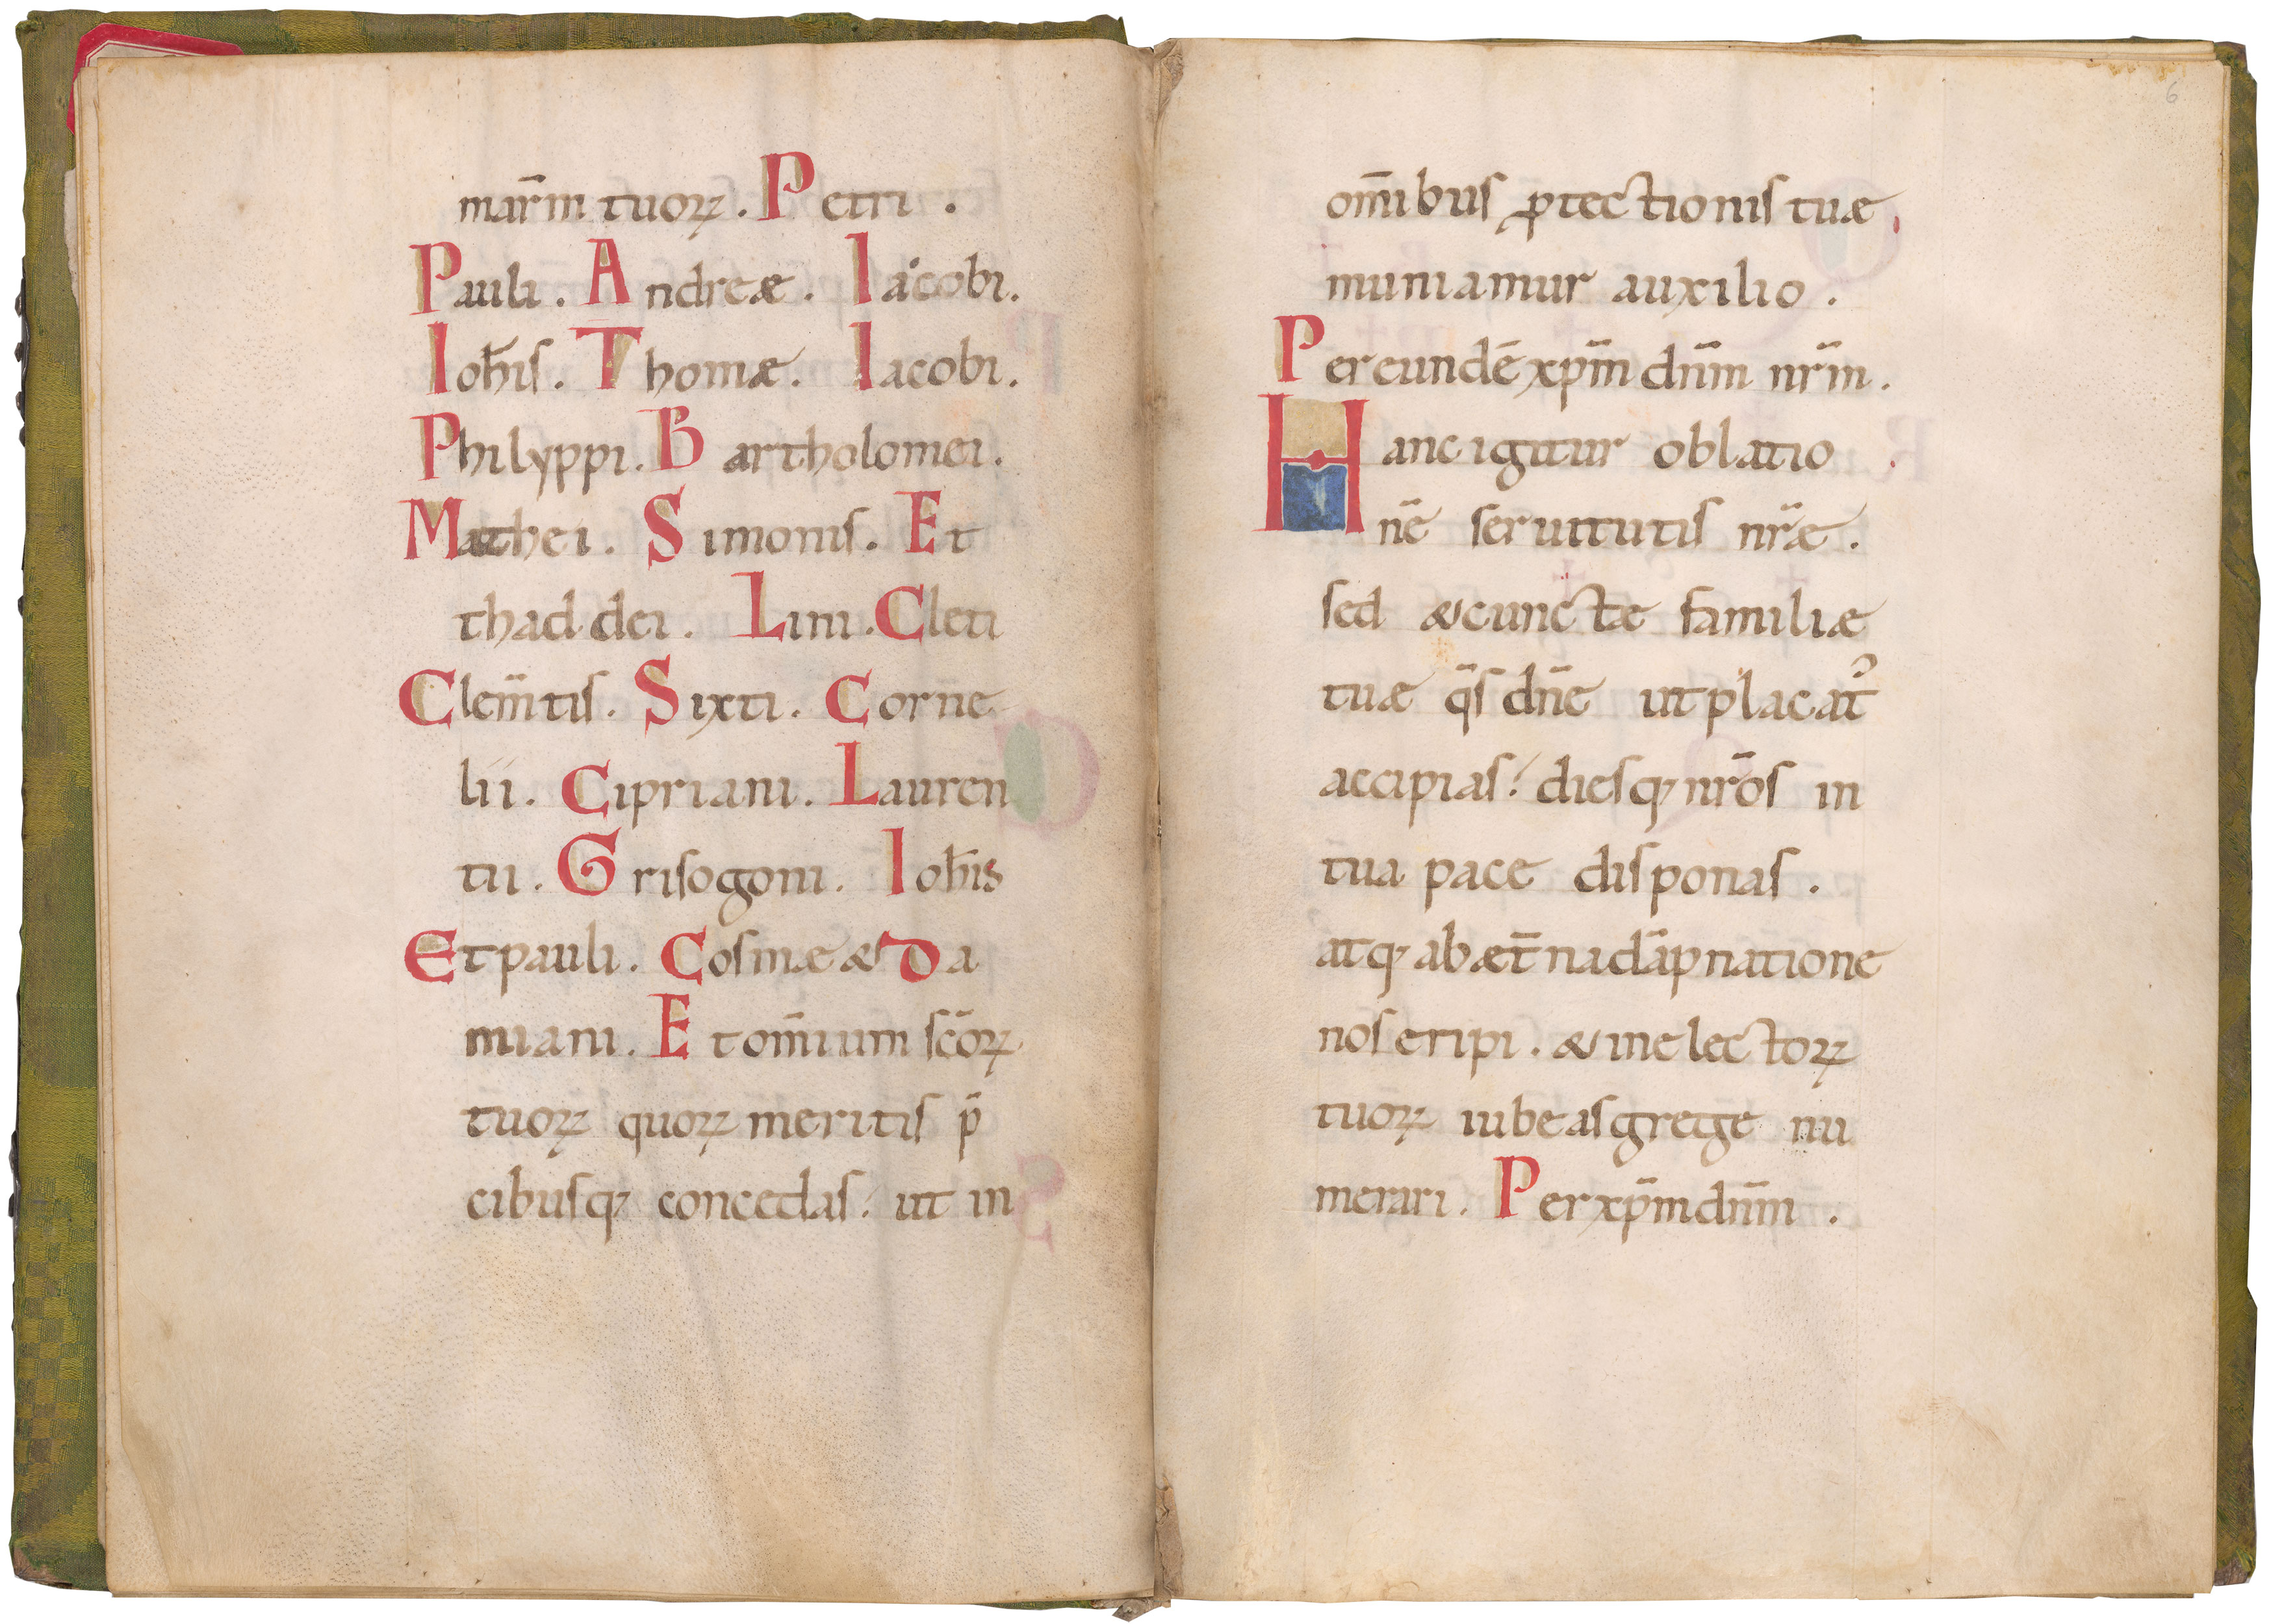 mar̅m tuoꝝ. Petri.
Pauli. Andreæ. Iacobi.
Ioh̅is. Thomæ. Iacobi.
Philyppi. Bartholomei.
Mathei. Simonis. Et
thaddei. Lini. Cleti
Clem̅tis. Sixti. Corne
lii. Cipriani. Lauren
tii. Grisogoni. Ioh̅is
Et pauli. Cosmæ & Da
miani. Et om̅ium sc̅oꝝ
tuoꝝ quoꝝ meritis p̅
cibusq; concedas. ut in
6
om̅ibus ꝓtectionis tuæ
muniamur auxilio.
Per eunde̅ xp̅m dn̅m nr̅m.
Hanc igitur oblatio
ne̅ seruitutis nr̅æ.
sed & cunctæ familiæ
tuæ qs̅ dn̅e ut placat᷒
accipias. diesq; nr̅os in
tua pace disponas.
atq; ab æt̅na da̅pnatione
nos eripi. & in electoꝝ
tuoꝝ iubeas grege nu
merari. Per xp̅m dn̅m.